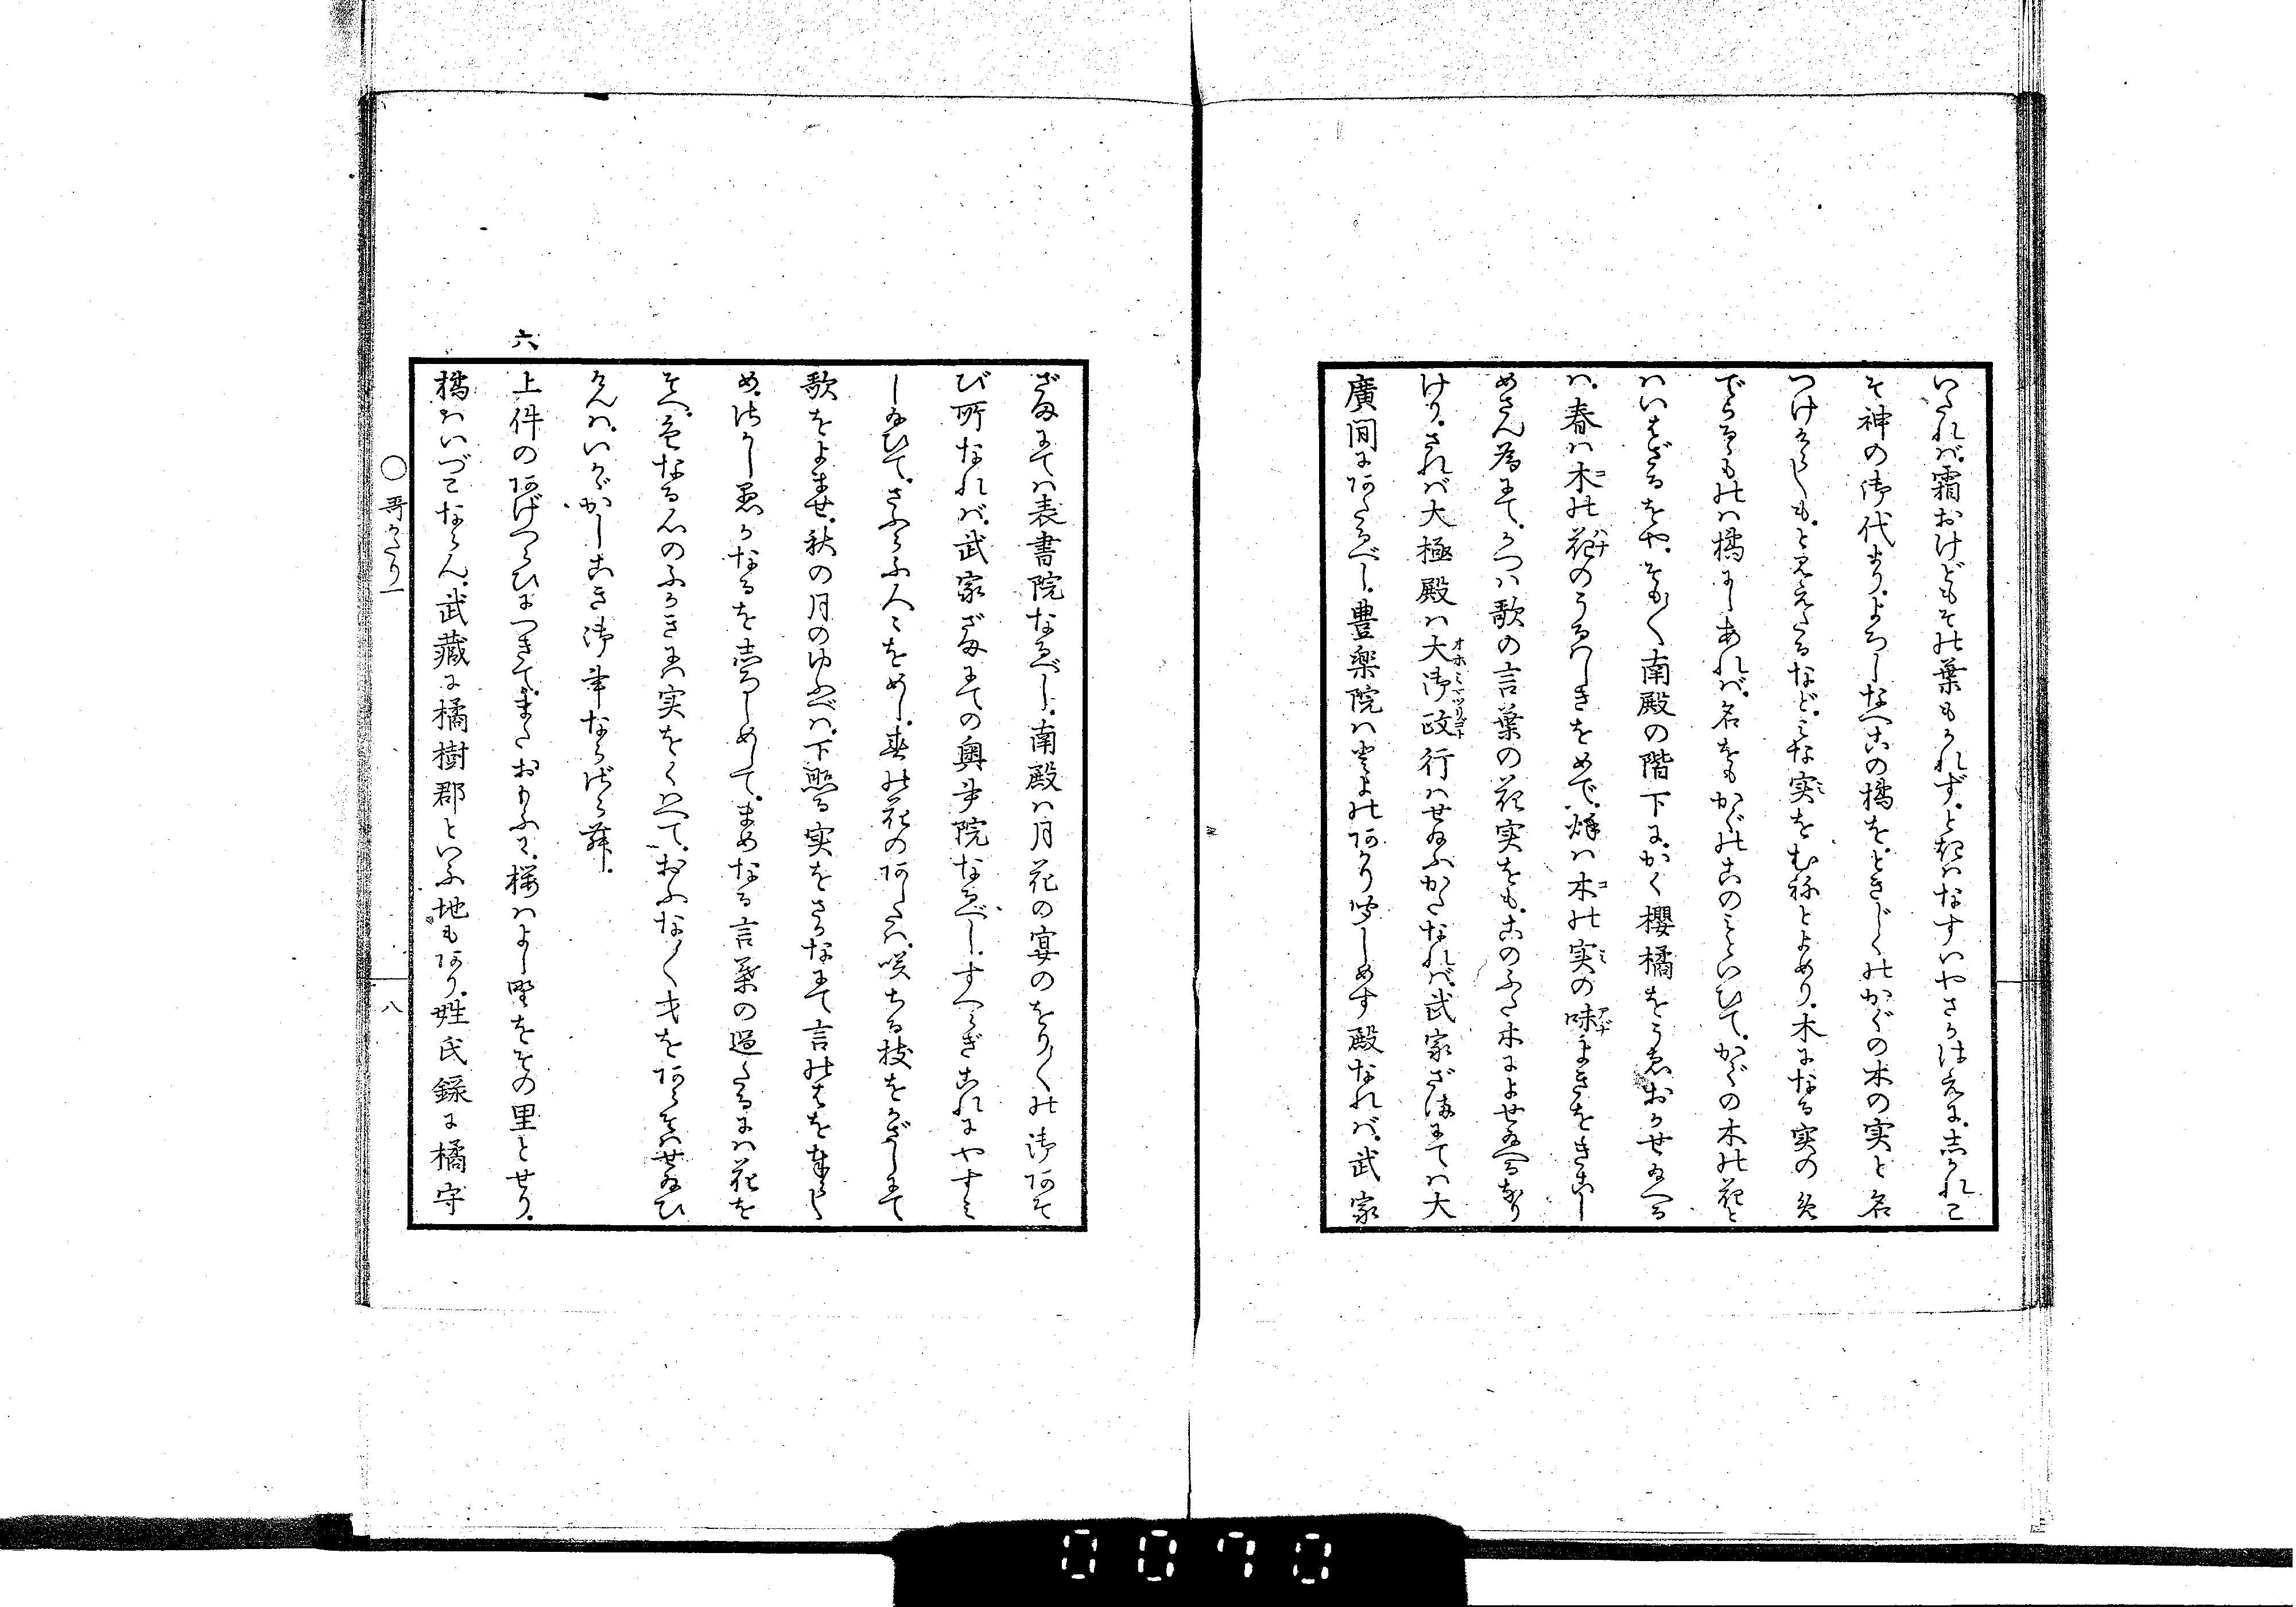 いたれば霜おけどもその葉もかれずときはなすいやさかはえにしかれこ
そ神の御代よりよろしなへこの橘をときじくのかぐの木の実と名
つけけらしもと見えたるなどみな実をむねとよめり木になる実の名
でらるものは橘にしあればゝ名をもかぐのこのみといひてかぐの木の花と
はいはざるをやそも〱南殿の階下にかく櫻橘をうゑおかせ給へる
は春は木の花のうるはしきをめで秋は木の実の味よきをきこし
めさん為にてかつは歌の言葉の花実をもこのふた木によせ給へるなり
けりされば大極殿は大御政行はせ給ふかたなれば武家ざまにては大
廣間にあたるべし豊楽院はとよのあかり聞しめす殿なれば武家
ざまにては表書院なるべし南殿は月花の宴のをり〱の御あそ
び所なれば武家ざまにての奥書院なるべしすべらぎこれにやすみ
し給ひてさふらふ人々をめし春の花のあしたは咲ちる枝をかざしにて
歌をよませ秋の月のゆふべは下照る実をさかなにて言のはを奉らし
め御かし愚かなるをしろしめしてまめなる言葉の過たるには花を
そへ色なる心のふかきには実をくはへておふな〱才をあらそはせ給ひ
けんはいかゞかしこき御事ならずらむ
六 上件のあげつらひにつきてまたおもふに櫻はよし野をその里とせり
橘はいづこならん武藏に橘樹郡といふ地もあり姓氏録に橘守
○哥かたり一
八
0070